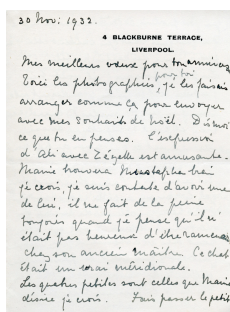 30 Nov: 1932.
4 BLACKBURNE TERRACE,
LIVERPOOL.
Mes meilleurs vœux pour ton
Voici les photographies, je les faisais
pour toi
arranger comme ça pour envoyer
avec mes souhaits de Noël. Dis moi
ce que tu en penses. L'expression
d'Ali avec est amusante.
Marie trouvera Mustapha bien
je crois, je suis contente d'avoir une
de lui, il me fait de la peine
toujours quand je pense qu'il n'
était pas heureux d'être
chez son ancien maître. Ce chat
était un vrai méridionale.
Les quatres petites sont celles que Marie
désire je crois. Fais passer le petit